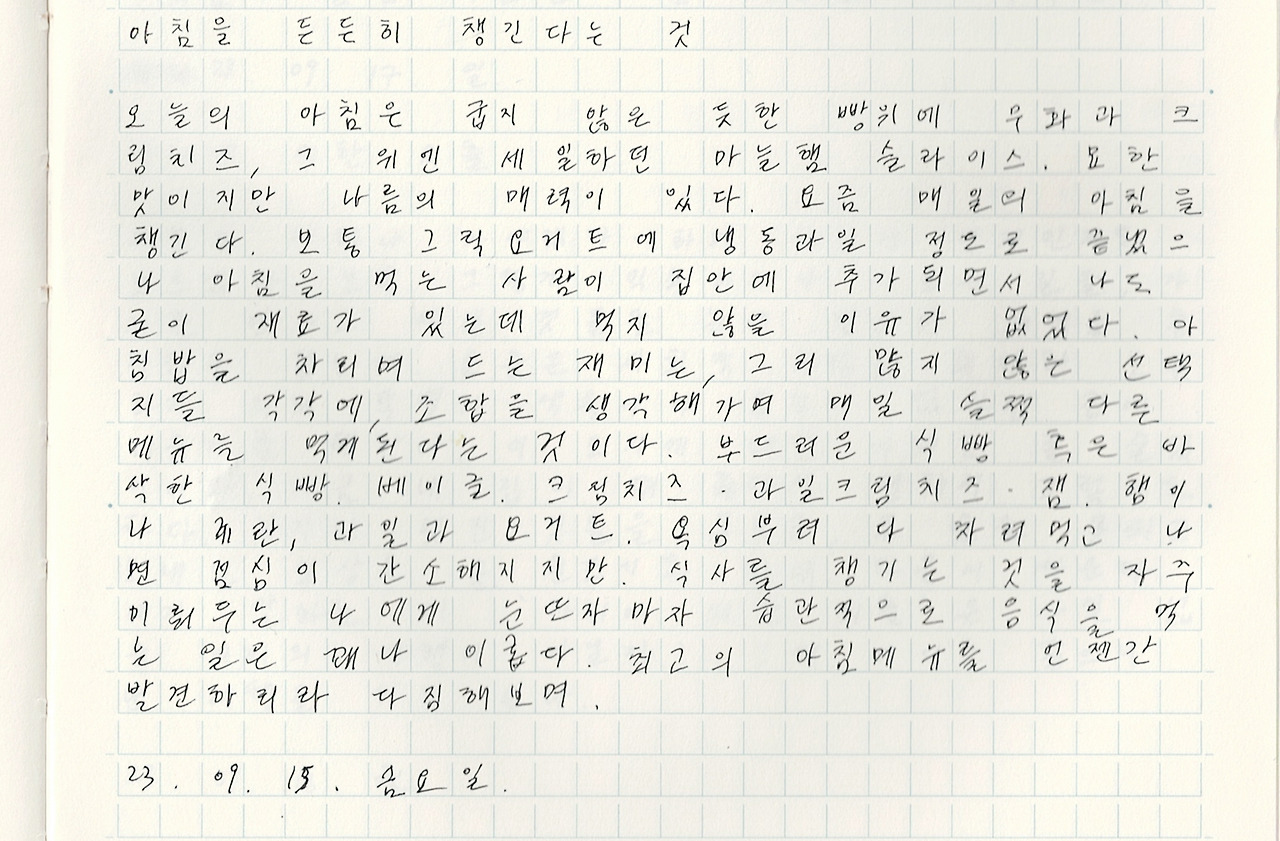 아침을 든든히 챙긴다는 것
오늘의 아침은 굽지 않은 듯한 빵위에 무화과 크
림치즈, 그 위엔 세일하던 마늘햄 슬라이스. 묘한
맛이지만 나름의 매력이 있다. 요즘 매일의 아침을
챙긴다. 보통 그릭요거트에 냉동과일 정도로 끝냈으
나 아침을 먹는 사람이 집안에 추가되면서 나도
굳이 재료가 있는데 먹지 않을 이유가 없었다. 아
침밥을 차리며 드는 재미는, 그리 많지 않은 선택
지들 각각에, 조합을 생각해가며 매일 슬쩍 다른
메뉴를 먹게된다는 것이다. 부드러운 식빵 혹은 바
삭한 식빵. 베이글. 크림치즈·과일크림치즈·잼. 햄이
나 계란, 과일과 요거트. 욕심부려 다 차려먹고 나
면 점심이 간소해지지만. 식사를 챙기는 것을 자주
미뤄두는 나에게 눈뜨자마자 습관적으로 음식을 먹
는 일은 꽤나 이롭다. 최고의 아침메뉴를 언젠간
발견하리라 다짐해보며.
23. 09. 15. 금요일.